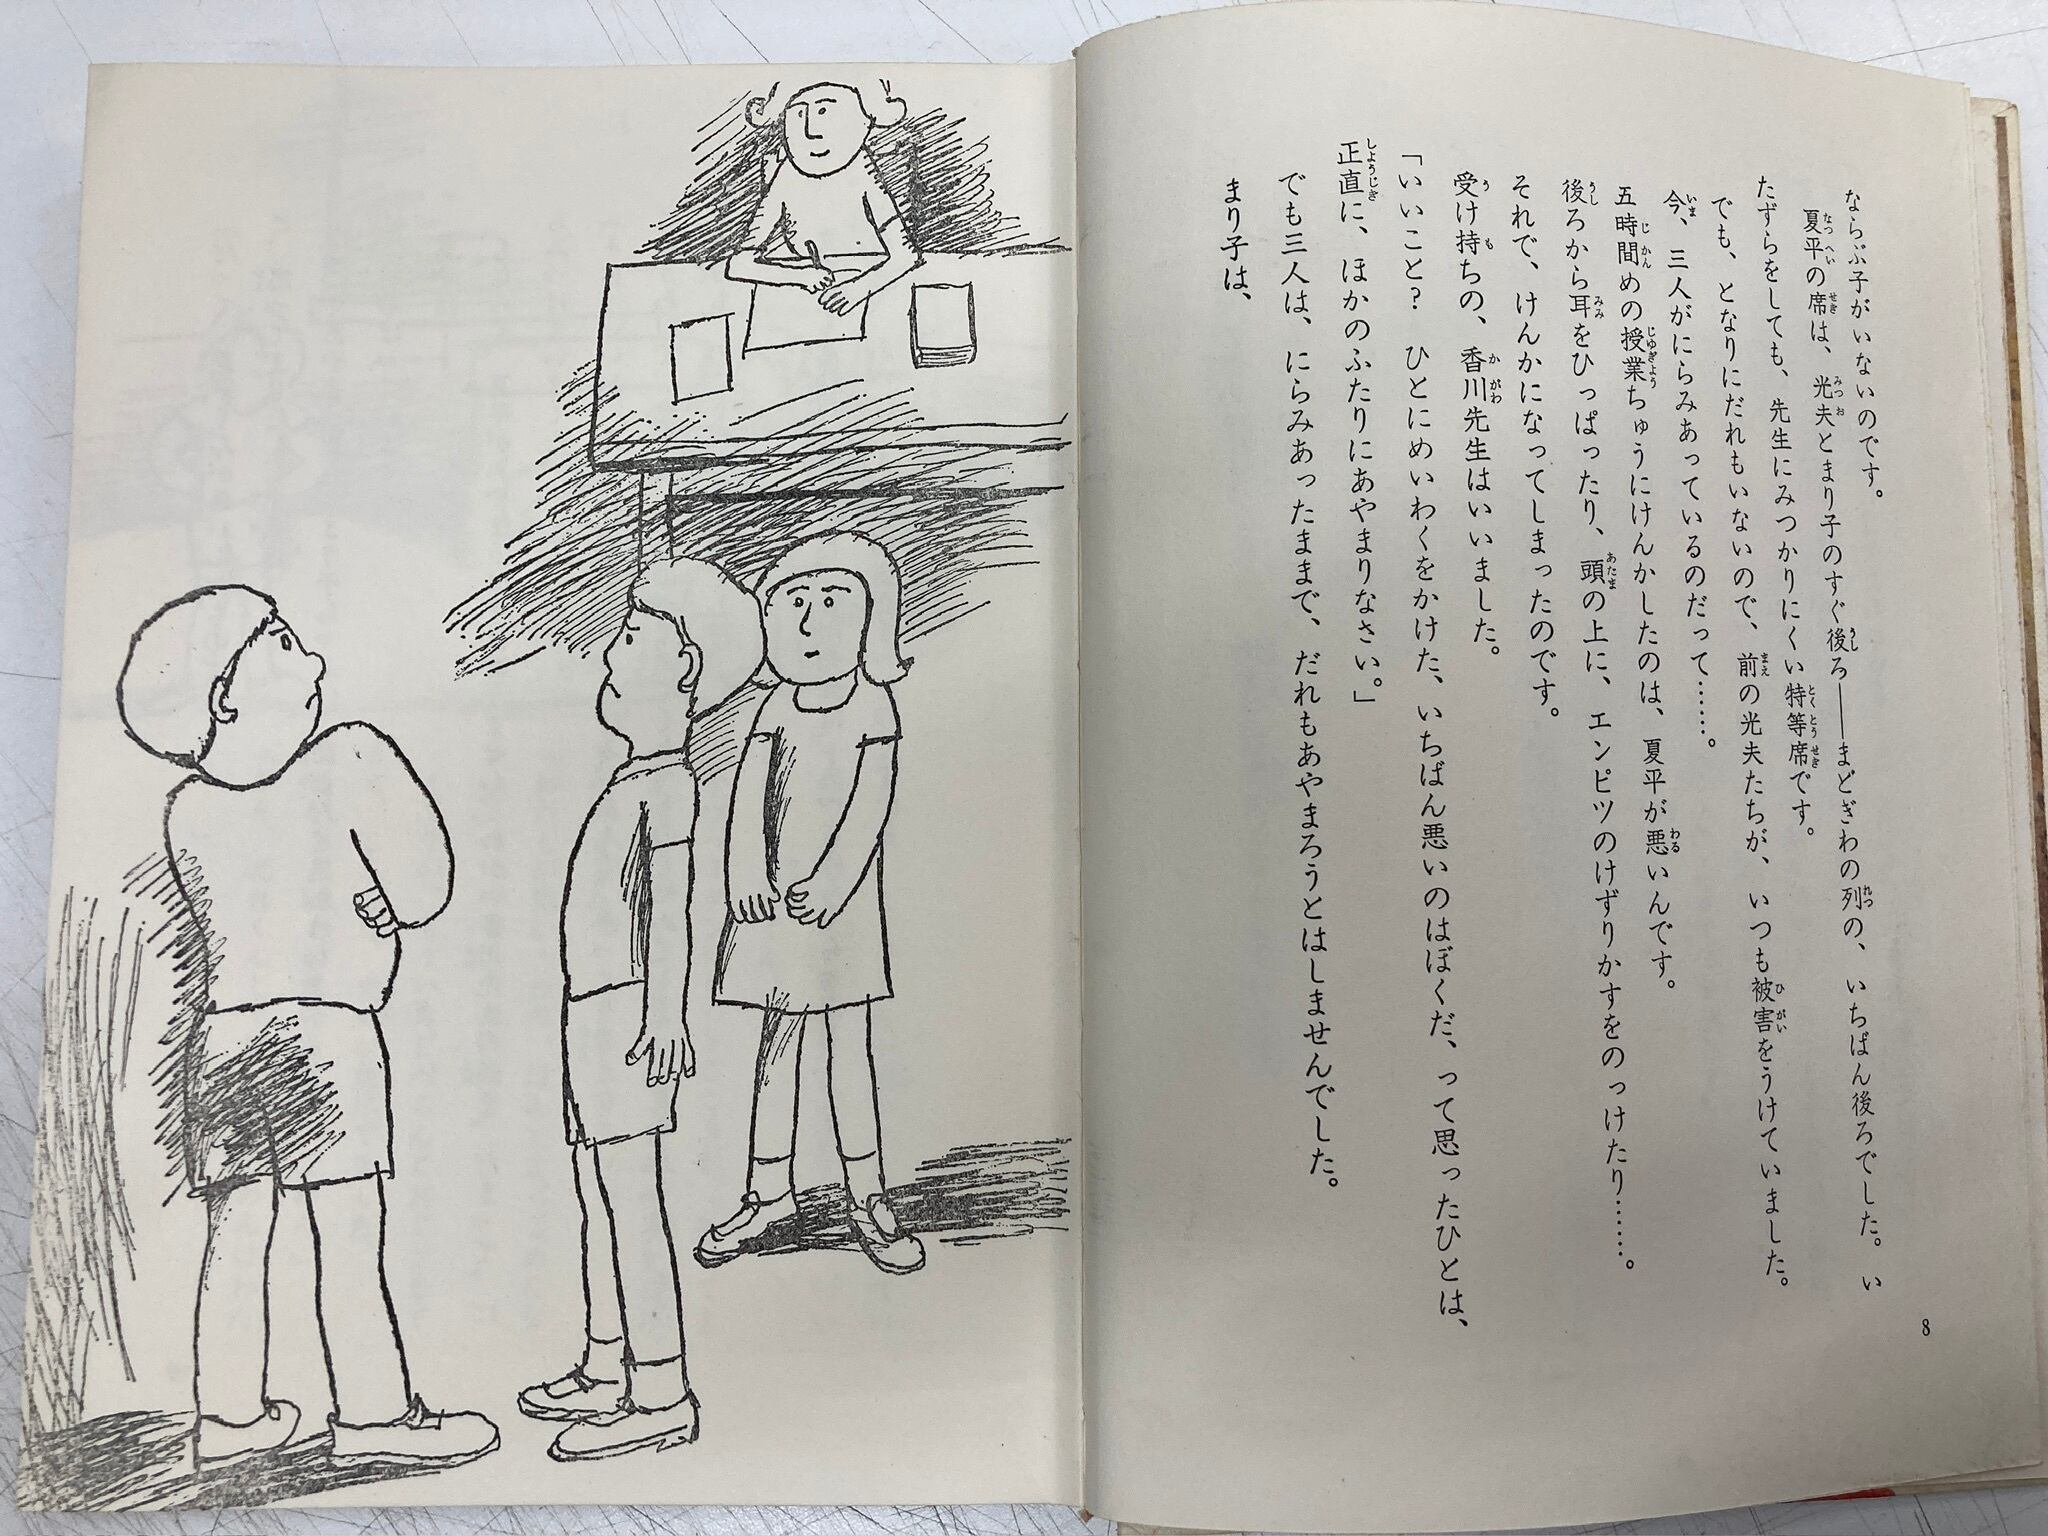 ならぶ子がいないのです。
夏平の席は、光夫とまり子のすぐ後ろ――まどぎわの列の、いちばん後ろでした。い
たずらをしても、先生にみつかりにくい特等席です。
でも、となりにだれもいないので、前の光夫たちが、いつも被害をうけていました。
今、三人がにらみあっているのだって……。
五時間めの授業ちゅうにけんかしたのは、夏平が悪いんです。
後ろから耳をひっぱったり、頭の上に、エンピツのけずりかすをのっけたり……。
それで、けんかになってしまったのです。
受け持ちの、香川先生はいいました。
「いいこと？　ひとにめいわくをかけた、いちばん悪いのはぼくだ、って思ったひとは、
正直に、ほかのふたりにあやまりなさい。」
でも三人は、にらみあったままで、だれもあやまろうとはしませんでした。
まり子は、
8